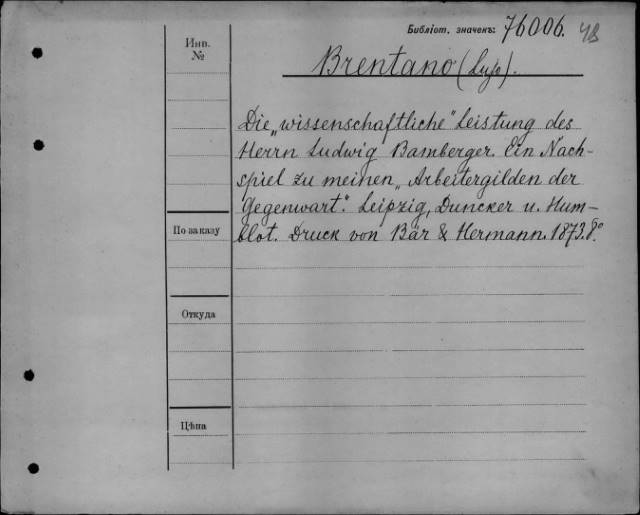 Библіот. значекъ: 76006. 4B
Инв.
№
Brentano (Lujo).
Die „wissenschaftliche“ Leistung des
Herrn Ludwig Bamberger. Ein Nach-
spiel zu meinen „Arbeitergilden der
Gegenwart“. Leipzig, Duncker u. Hum-
blot. Druck von Bär & Hermann. 1873. 8°.
По заказу
Откуда
Цѣна